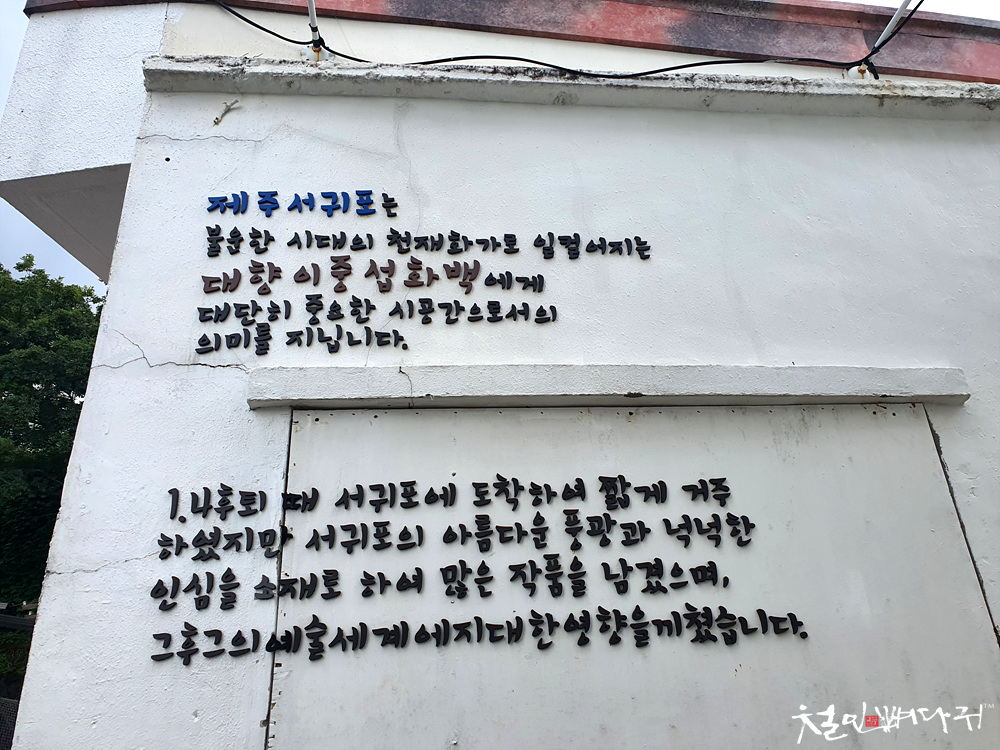 제주서귀포는
불운한 시대의 천재화가로 일컬어지는
대향이중섭화백에게
대단히 중요한 시공간으로서의
의미를 지닙니다.
1.4후퇴 때 서귀포에 도착하여 짧게 거주
하였지만 서귀포의 아름다운 풍광과 넉넉한
인심을 소재로 하여 많은 작품을 남겼으며,
그후그의예술세계에지대한영향을끼쳤습니다.